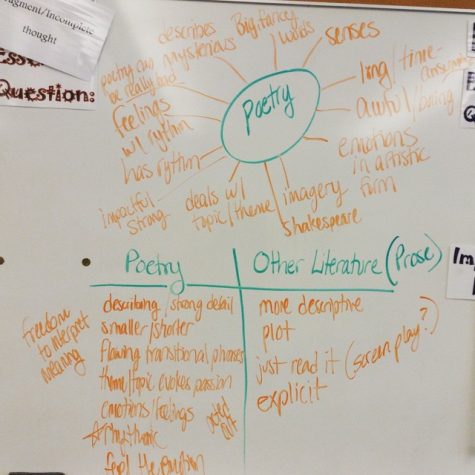 Fragment/Incomplete
thought
Question:
Poetry
describes
mysterious
Big, fancy
words
senses
long/time-
consuming
awful/boring
emotions
in artistic
form
imagery
Shakespeare
deals w/
topic/theme
impactful
strong
has rythm
feelings
w/ rythm
poetry can
be really bad
Poetry
describing/strong detail
smaller/shorter
flowing transitional phrases
theme/topic evokes passion
emotions/feelings
acted
out
feel the emotion
freedom
to interpret
meaning
Other Literature (Prose)
more descriptive
plot
just read it (screenplay?)
explicit